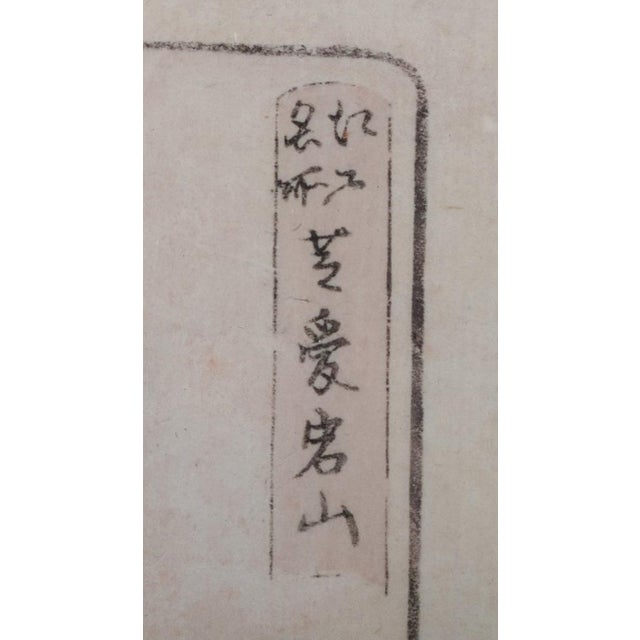 江戸
名所
芝愛宕山